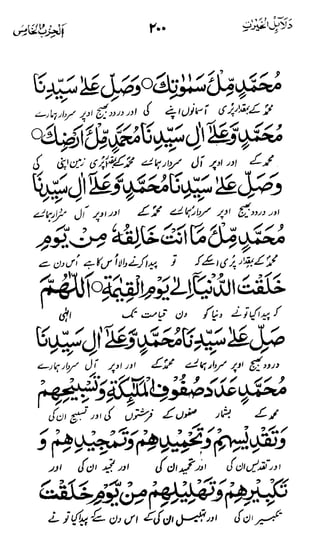 دلائل الخیرات ۲۰۰ الحزب الخامس
مُحَمَّدٍ مِّلْءَ سَمٰوٰتِكَ ○ وَصَلِّ عَلٰى سَيِّدِنَا
محمد کے بقدر پُری آسمانوں اپنے کی اور درود بھیج اوپر سردار ہمارے
مُحَمَّدٍ وَّعَلٰى اٰلِ سَيِّدِنَا مُحَمَّدٍ مِّلْءَ اَرْضِكَ ○
محمد کے اور اوپر آل سردار ہمارے محمد کے بقدر پُری زمین اپنی کی
وَصَلِّ عَلٰى سَيِّدِنَا مُحَمَّدٍ وَّعَلٰى اٰلِ سَيِّدِنَا
اور درود بھیج اوپر سردار ہمارے محمد کے اور اوپر آل سردار ہمارے
مُحَمَّدٍ مِّلْءَ مَا اَنْتَ خَالِقُهٗ مِنْ يَّوْمِ
محمد کے بقدر پُری اسکے کہ تو پیدا کرنے والا اُس کا ہے اُس دن سے
خَلَقْتَ الدُّنْيَا اِلٰى يَوْمِ الْقِيٰمَةِ ○ اَللّٰهُمَّ
کہ پیدا کیا تو نے دنیا کو دن قیامت تک الٰہی
صَلِّ عَلٰى سَيِّدِنَا مُحَمَّدٍ وَّعَلٰى اٰلِ سَيِّدِنَا
درود بھیج اوپر سردار ہمارے محمد کے اور اوپر آل سردار ہمارے
مُحَمَّدٍ عَدَدَ صُفُوْفِ الْمَلٰٓئِكَةِ وَتَسْبِيْحِهِمْ
محمد کے بشمار صفوں کے فرشتوں کی اور تسبیح ان کی
وَتَقْدِيْسِهِمْ وَتَحْمِيْدِهِمْ وَتَمْجِيْدِهِمْ وَ
اور تقدیس ان کی اور تحمید ان کی اور تمجید ان کی اور
تَكْبِيْرِهِمْ وَتَهْلِيْلِهِمْ مِنْ يَّوْمِ خَلَقْتَ
تکبیر ان کی اور تہلیل ان کی کے اس دن سے کہ پیدا کیا تو نے